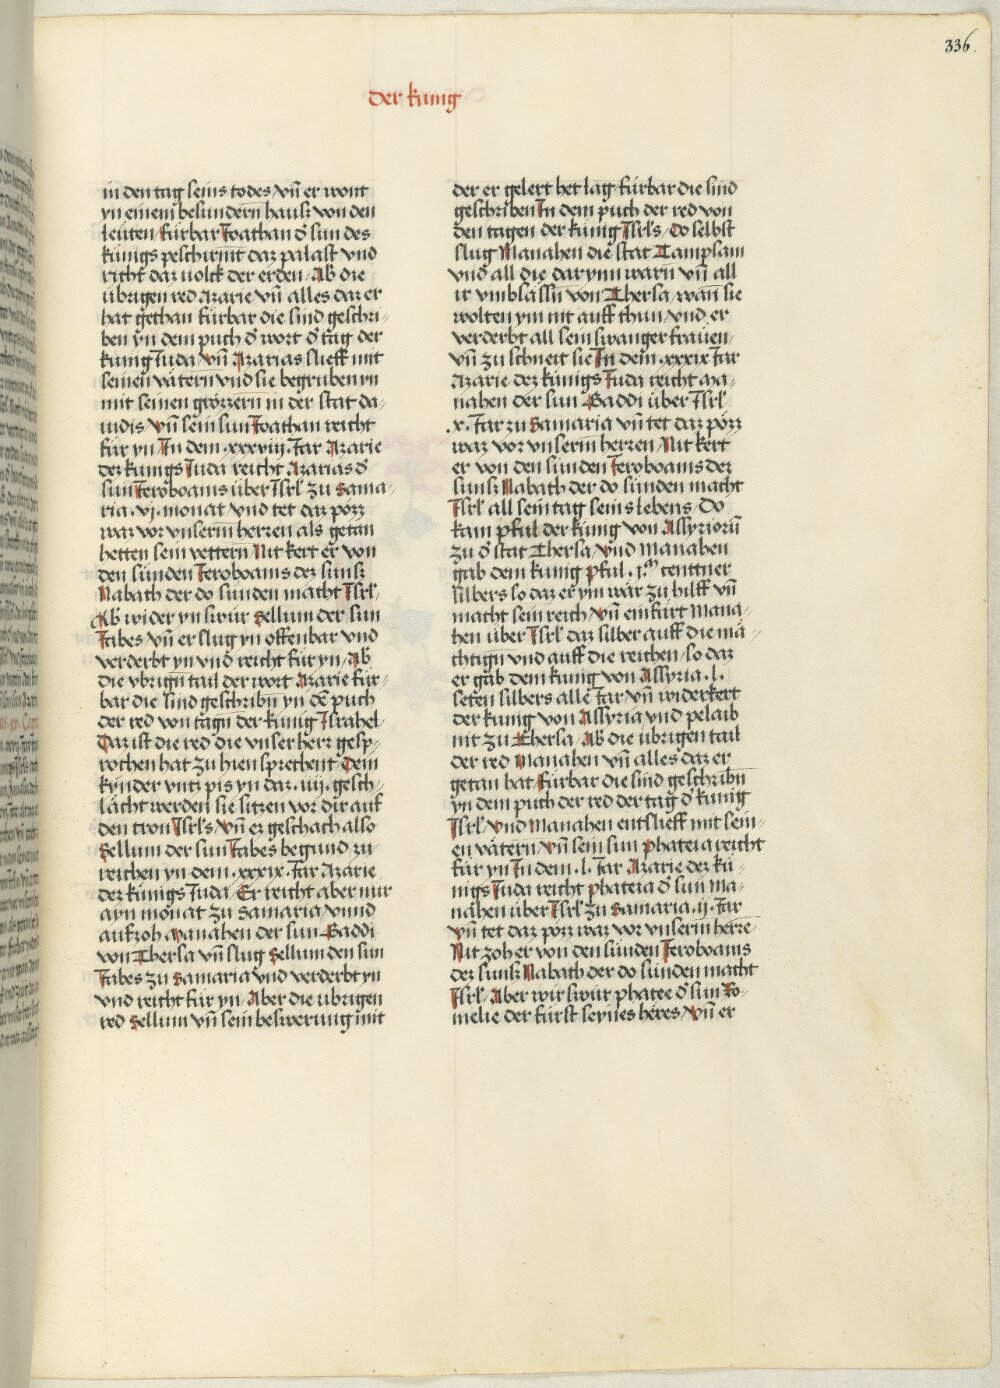 336.
der kunig
in den tag seins todes vn̄ er wont
yn einem besundern̄ hauss von den
leuten / fürbar Joathan d᷑ sun des
künigs peschirmt daz palast vnd
richt daz uolck der erden / Ab die
übrigen red Azarie vn̄ alles daz er
hat gethan fürbar die sind geschri⸗
ben yn dem puch d᷑ wort d᷑ tag der
kunig Iuda / vn̄ Azarias slieff mit
seinen vätern vnd sie begruben yn
mit seinen grözzern in der stat da⸗
uidis vn̄ sein sun Joathan reicht
für yn / In dem .xxxviij. Iar Azarie
dez kunigs Iuda reicht Azarias d᷑
sun Ieroboams über Isrl̄ zu Sama⸗
ria .vj. monat vnd tet daz pözz
waz vor vnserm̄ herren als getan
hetten sein vettern Nit kert er von
den sünden Ieroboams dez sunss
Nabath der do sünden macht Isrl̄ /
Ab wider yn swür Sellum der sun
Iabes vn̄ er slug yn offenbar vnd
verderbt yn vnd reicht für yn / Ab
die vbrign̄ tail der wort Azarie für⸗
bar die sind geschribn̄ yn dē puch
der red von tagn̄ der kunig Israhel
Daz ist die red die vnser herr gesp⸗
rochen hat zu hien sprechent / Dein
kynder vntz pis yn daz .iiij. gesch⸗
lächt werden sie sitzen vor dir auf
den tron Isrl̄s / vn̄ ez geschach also
Sellum der sun Iabes begund zu
reichen yn dem .xxxix. Iar Azarie
dez künigs Iuda / Er reicht aber nur
ayn monat zu Samaria / vnnd
aufzoh Manahen der sun Gaddi
von Thersa vn̄ slug Sellum den sun
Iabes zu Samaria vnd verderbt yn
vnd reicht für yn / Aber die übrigen
red Sellum vn̄ sein beswerung mit
der er gelezt het lag fürbar die sind
geschriben In dem puch der red von
den tagen der kunig Isrl̄s / Do selbst
slug Manahen die stat Tampsam
vnd all die darynn warn vn̄ all
ir vmbsässn̄ von Thersa / wan̄ sie
wolten ym nit auff thun / vnd er
verderbt all sein swanger frauen
vn̄ zu schneit sie In dem .xxxix Iar
Azarie dez künigs Iuda reicht Ma⸗
nahen der sun Gaddi über Isrl̄
.x. Iar zu Samaria vn̄ tet daz pözz
waz vor vnserm̄ herren / Nit kert
er von den sünden Ieroboams dez
sunss Nabath der do sünden macht
Isrl̄ all sein tag seins lebens / Do
kam Pful der kunig von Assyriorū
zu d᷑ stat Thersa / vnd Manahen
gab dem kunig Pful .jᵐ. centtner
silbers so daz er ym wär zu hilff vn̄
macht sein reich / vn̄ einfürt Mana⸗
hen über Isrl̄ daz silber auff die mä⸗
chtign̄ vnd auff die reichen / so daz
er gäb dem kunig von Assyria .l.
seten silbers alle Iar / vn̄ widerkert
der kunig von Assyria vnd pelaib
nit zu Thersa / Ab die übrigen tail
der red Manahen vn̄ alles daz er
getan hat / fürbar die sind geschribn̄
yn dem puch der red der tag d᷑ kunig
Isrl̄ / vnd Manahen entslieff mit sein⸗
en vätern / vn̄ sein sun Phateia reicht
für yn In dem .l. Iar Azarie dez kü⸗
nigs Iuda reicht Phateia d᷑ sun Ma⸗
nahen über Isrl̄ zu Samaria .ij. Iar
vn̄ tet daz pözz waz vor vnserm herrē
Nit zoh er von den sünden Ieroboams
dez sunss Nabath der do sünden macht
Isrl̄ / Aber wir swür phatee d᷑ sun Ro⸗
melie der fürst seynes heres / vn̄ er